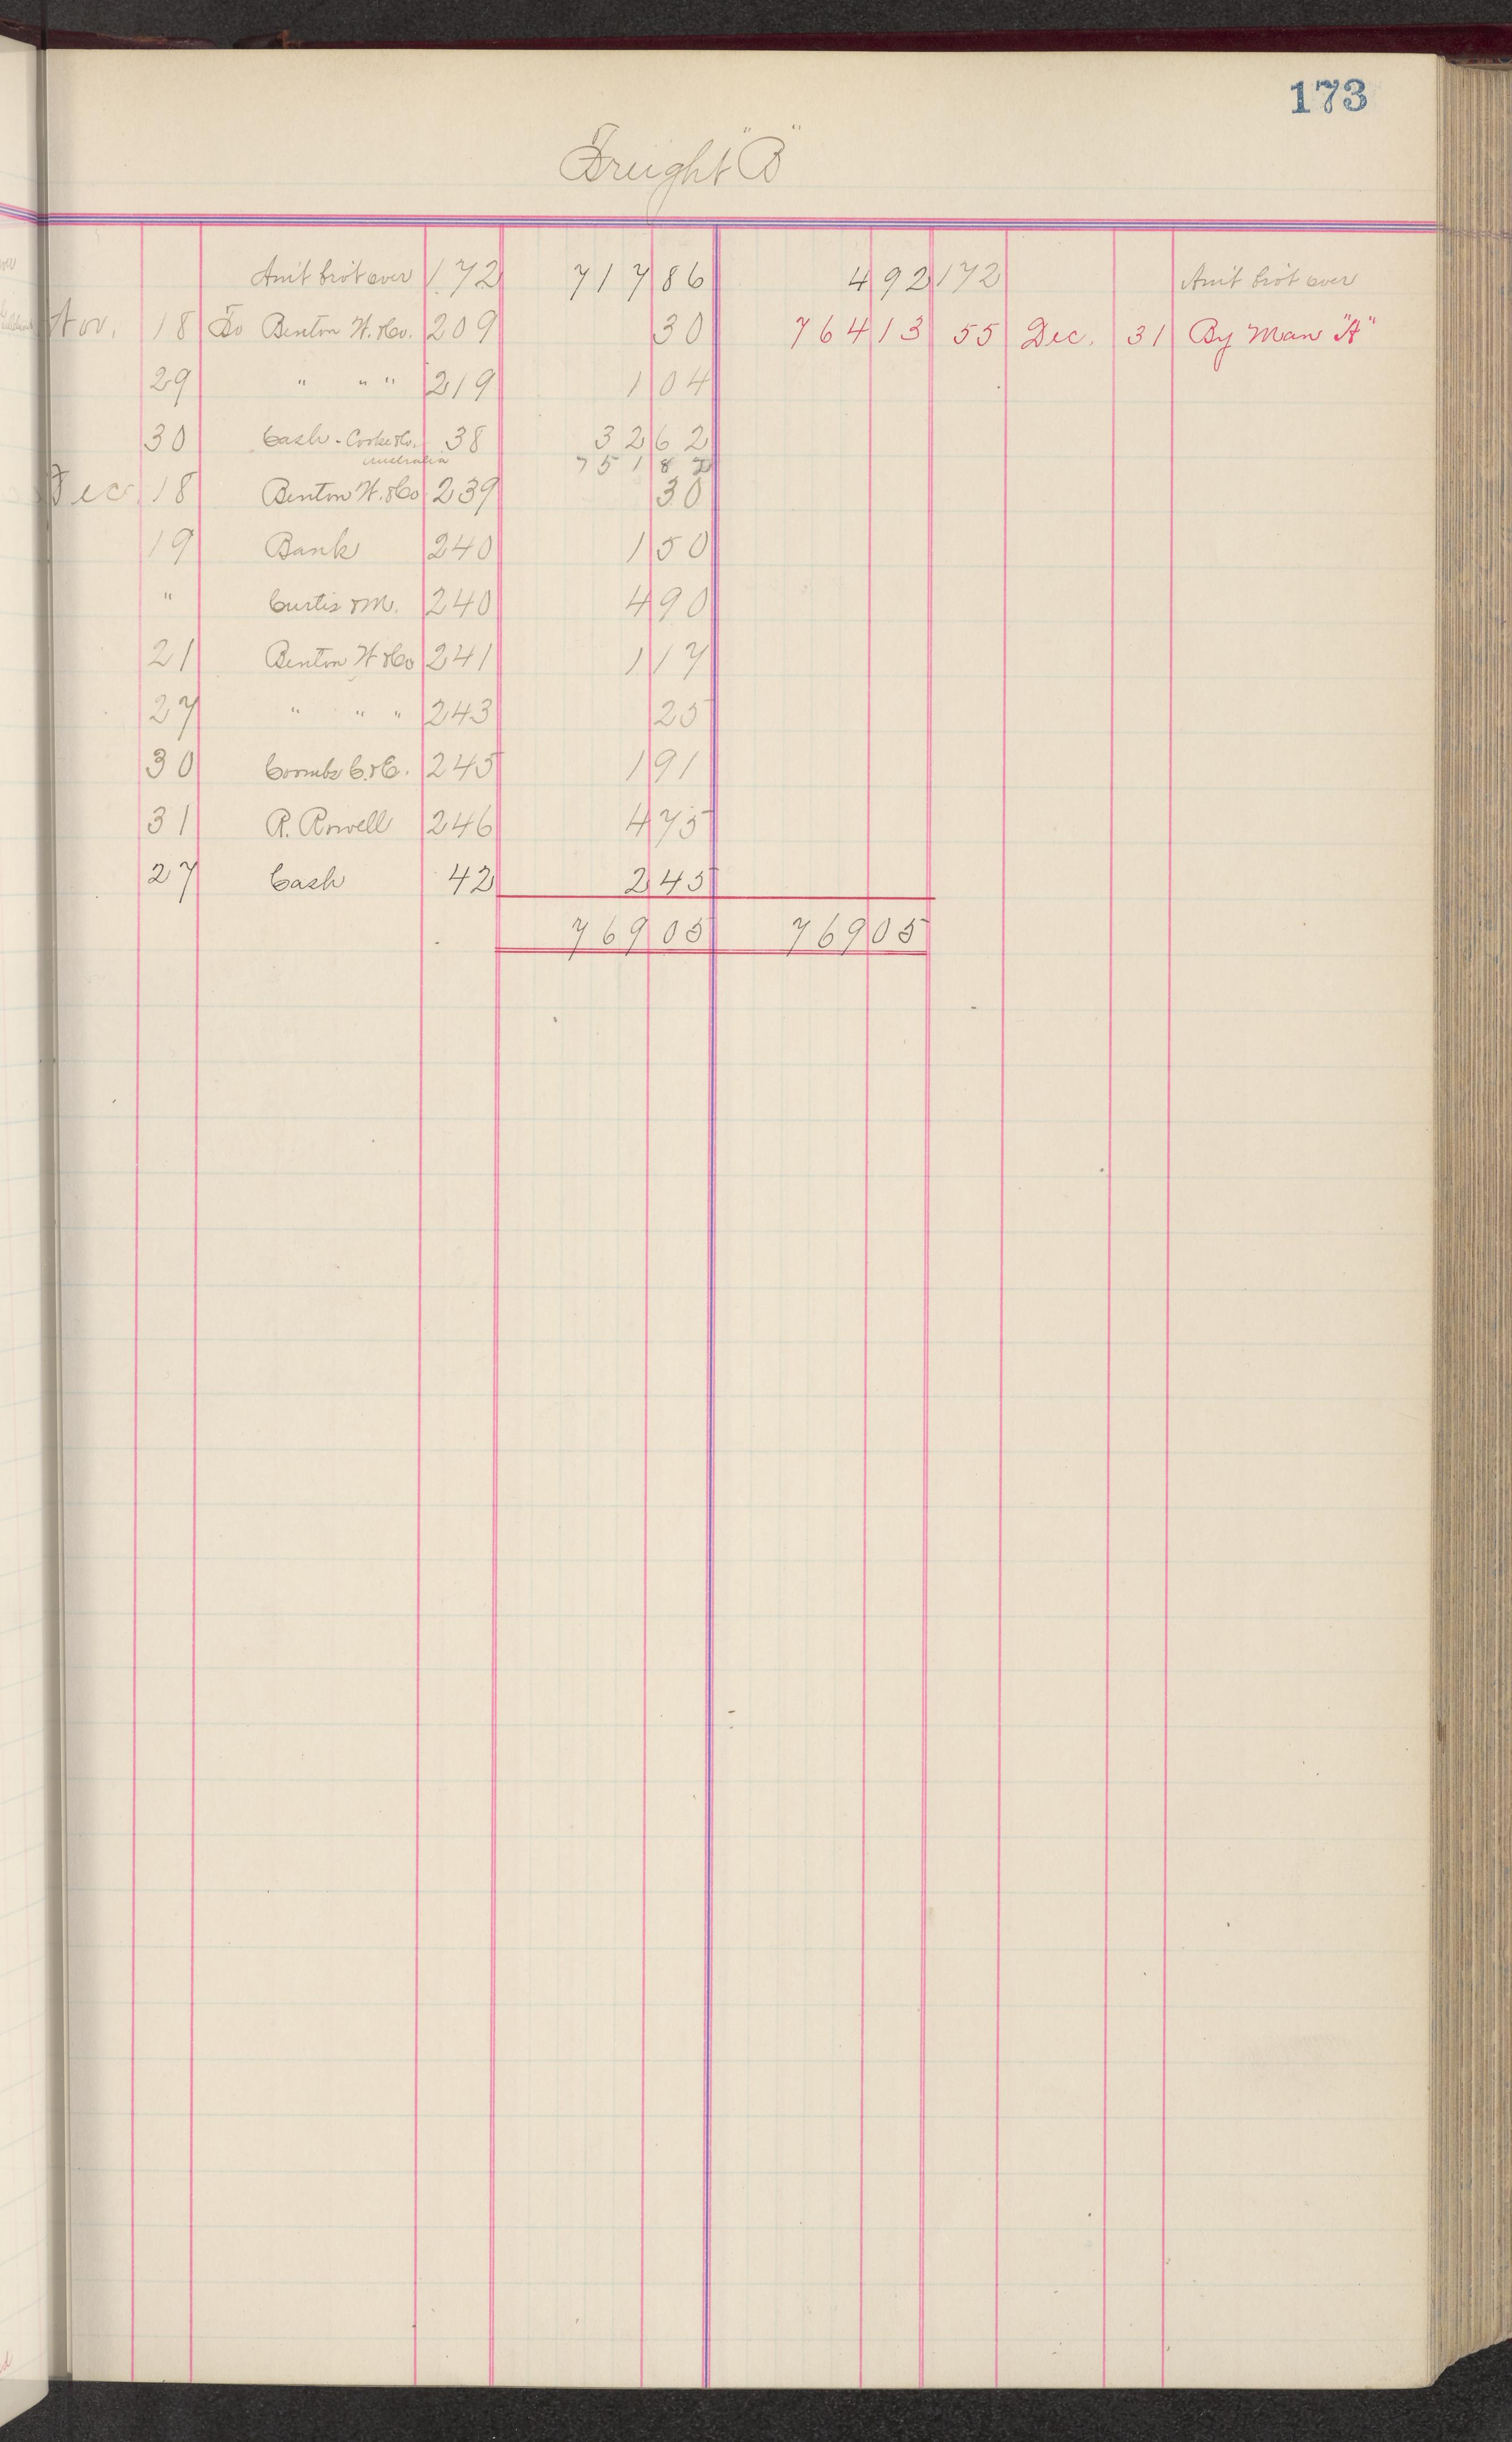 173
Freight "B"
Am't bro't over 172 717 86 4 92 172 Am't bro't over
Nov. 18 To Benton H. & Co. 209 30 764 13 55 Dec. 31 By Man "A"
29 " " " 219 1 04
30 Cash - Cooke & Co. 38 32 62
Australia 751 82
Dec. 18 Benton H. & Co 239 30
19 Bank 240 1 50
" Curtis & M. 240 4 90
21 Benton H & Co 241 1 17
27 " " " 243 25
30 Coombs C. & C. 245 1 91
31 R. Rowell 246 4 75
27 Cash 42 2 45
769 05 769 05